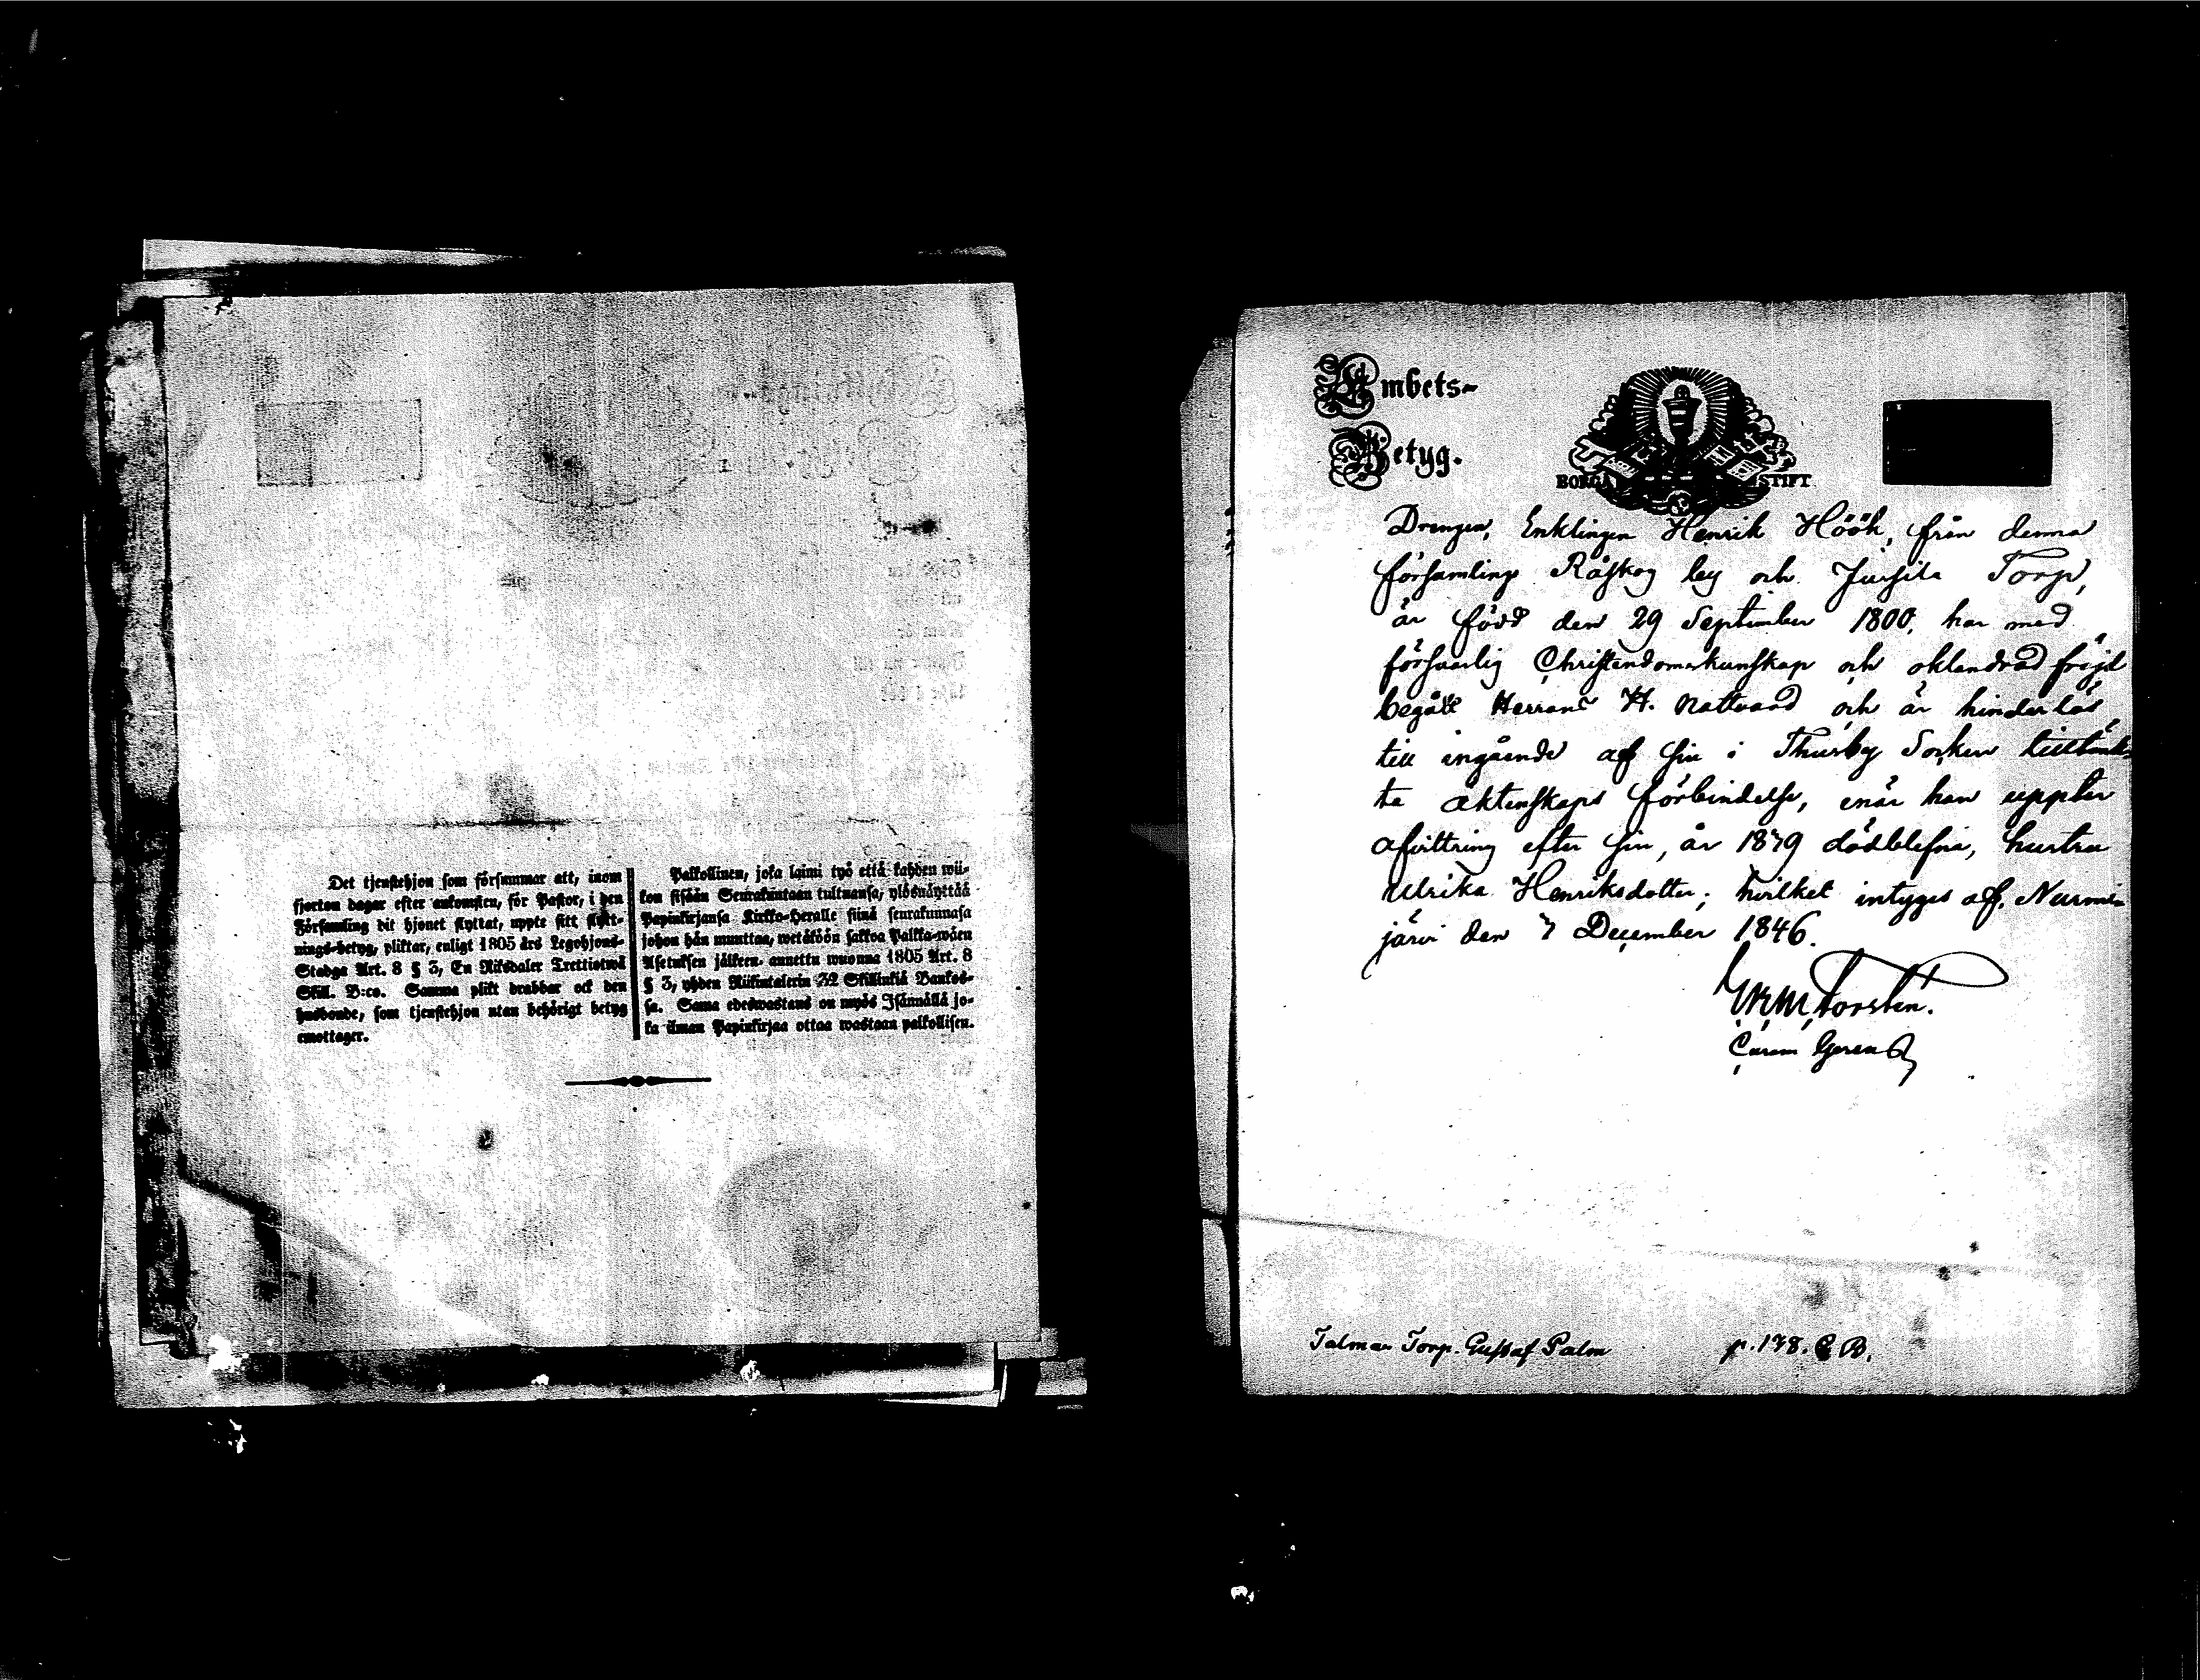 Det tjenstehjon som försummar att, inom
fjorton dagar efter ankomsten, för Pastor, i den
Församling dit hjonet flyttat, uppte sitt flytt-
nings-betyg, pliktar, enligt 1805 års Legohjons-
Stadga Art. 8 § 3, En Riksdaler Trettiotwå
Skill. B:co. Samma plikt drabbar ock den
husbonde, som tjenstehjon utan behörigt betyg
emottager.
Palkollinen, joka laimi työ että kahden wii-
kon sisään Seurakuntaan tultuansa, ylösnäyttää
Papinkirjansa Kirkko-Heralle siinä seurakunnasa
johon hän muuttaa, wetäköön sakkoa Palkka-wäen
Asetuksen jälkeen, annettu wuonna 1805 Art. 8
§ 3, yhden Riikintalerin 32 Skillinkiä Bankos-
sa. Sama edeswastaus on myös Isännällä jo-
ka ilman Papinkirjaa ottaa wastaan palkollisen.
Embets-
Betyg.
BORGÅ STIFT
Drengen, Enklingen Henrik Höök, från denna
församling Råskog by och Jussila Torp,
är född den 29 September 1800, har med
försvarlig Christendomskunskap och oklandrad fräjd
begått Herrans H. Nattvard och är hinderlös
till ingående af sin i Thusby Socken tilltänk-
ta äktenskaps förbindelse, enär han uppter
afvittring efter sin, år 1839 dödblefna, hustru
Ulrika Henriksdotter; hvilket intygas af, Nurmi-
järvi den 7 December 1846.
Torstén.
Talman Torp. Gustaf Palm p. 178. C B.